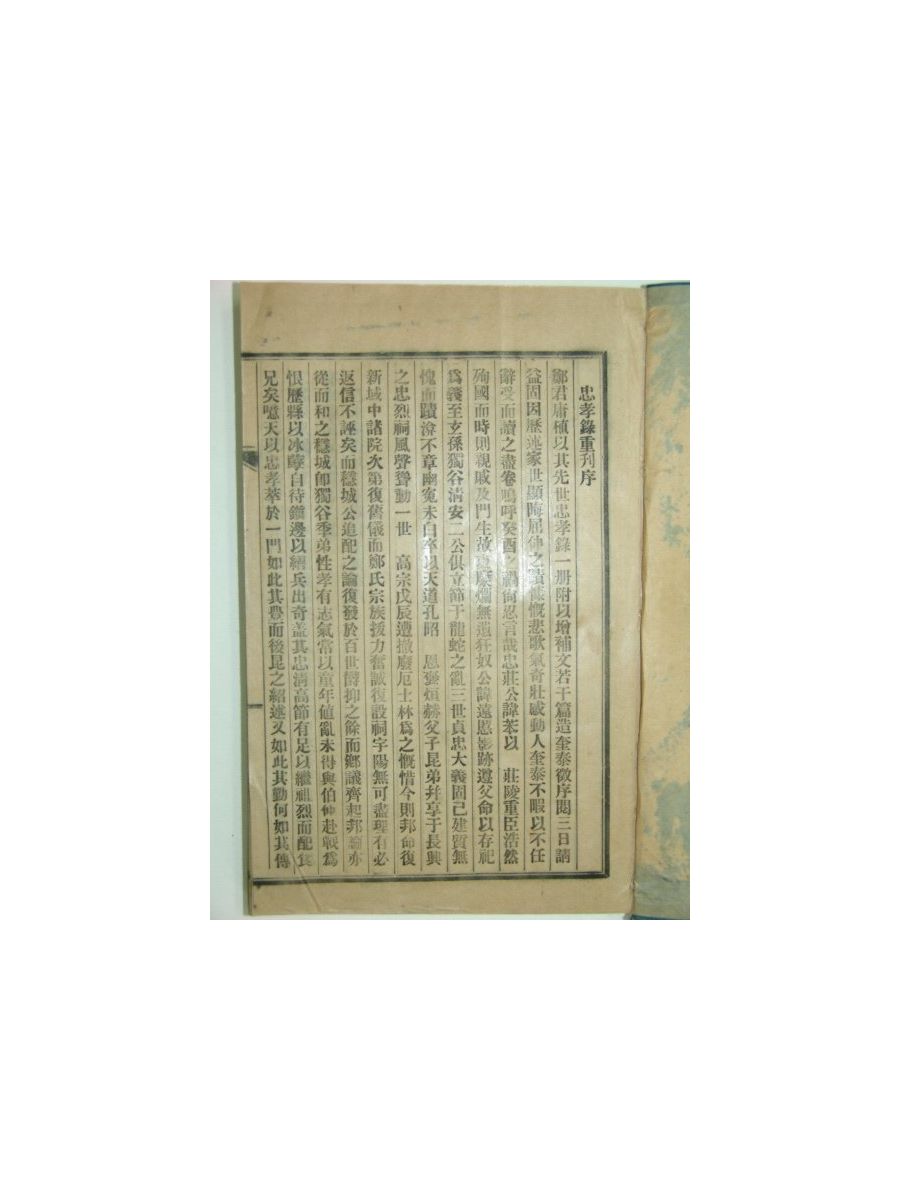 忠孝錄重刊序
鄭君庸植以其先世忠孝錄一册附以增補文若干篇造奎泰徵序閱三日請
益固因歷述家世顯晦屈伸之蹟慷慨悲歌氣奇壯感動人奎泰不暇以不任
辭受而讀之盡卷嗚呼癸酉之禍尙忍言哉忠莊公諱苯以 莊陵重臣浩然
殉國而時則親戚及門生故吏糜爛無遺狂奴公諱遠慝影跡遵父命以存祀
爲義至玄孫獨谷淸安二公俱立節于龍蛇之亂三世貞忠大義固已建質無
愧而蹟渰不章幽寃未白卒以天道孔昭 恩褒烜赫父子昆弟幷享于長興
之忠烈祠風聲聳動一世 高宗戊辰遭撤廢厄士林爲之慨惜今則邦命復
新域中諸院次第復舊儀而鄭氏宗族援力奮誠復設祠宇陽無可盡理有必
返信不誣矣而穩城公追配之論復發於百世欝抑之餘而鄕議齊起邦論亦
從而和之穩城卽獨谷季弟性孝有志氣當以童年値亂未得與伯仲赴戰爲
恨歷縣以冰蘗自待鎭邊以繕兵出奇盖其忠淸高節有足以繼祖烈而配食
兄矣噫天以忠孝萃於一門如此其豊而後昆之紹述又如此其勤何如其傳